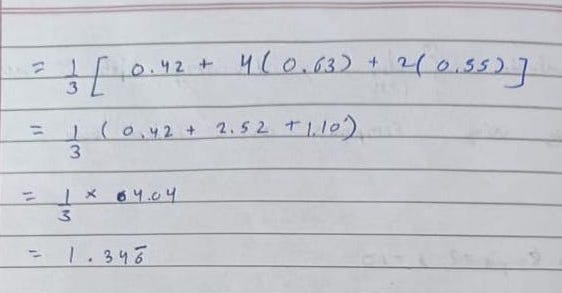 = 1/3 [ 0.42 + 4(0.63) + 2(0.55) ]
= 1/3 (0.42 + 2.52 + 1.10)
= 1/3 × 4.04
= 1.346̅